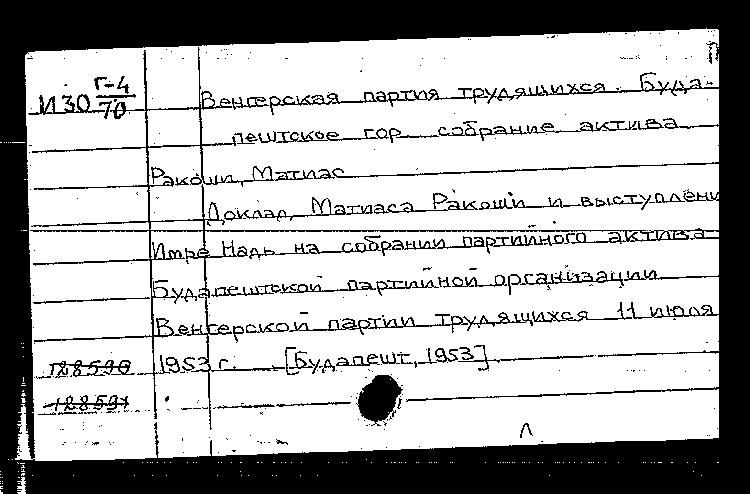 П
И30 Г-4/70 Венгерская партия трудящихся. Буда-
пештское гор. собрание актива
Ракоши, Матиас
Доклад Матиаса Ракоши и выступлени
Имре Надь на собрании партийного актива
Будапештской партийной организации
Венгерской партии трудящихся 11 июля
128590 1953 г. [Будапешт, 1953].
128591
Л